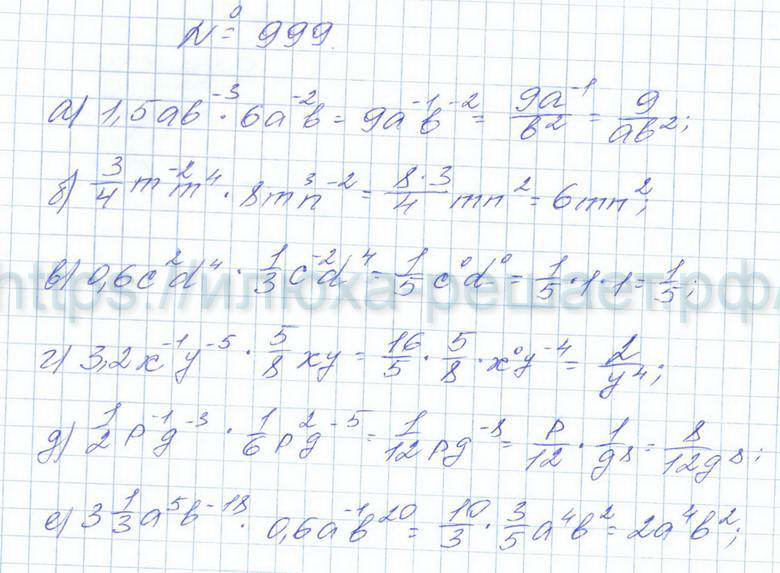 № 999.
а) 1,5ab⁻³ · 6a⁻²b = 9a⁻¹b⁻² = 9a⁻¹/b² = 9/ab²;
б) 3/4 m⁻²m⁴ · 8m³n⁻² = 8·3/4 mn² = 6mn²;
в) 0,6c²d⁴ · 1/3 c⁻²d⁴ = 1/5 c⁰d⁰ = 1/5 · 1 · 1 = 1/5;
г) 3,2x⁻¹y⁻⁵ · 5/8 xy = 16/5 · 5/8 · x⁰y⁻⁴ = 2/y⁴;
д) 1/2 p⁻¹g⁻³ · 1/6 p²g⁻⁵ = 1/12 pg⁻⁸ = p/12 · 1/g⁸ = 8/12g⁸;
е) 3 1/3 a⁵b⁻¹⁸ · 0,6a⁻¹b²⁰ = 10/3 · 3/5 a⁴b² = 2a⁴b²;
https://илюха-решает.рф/